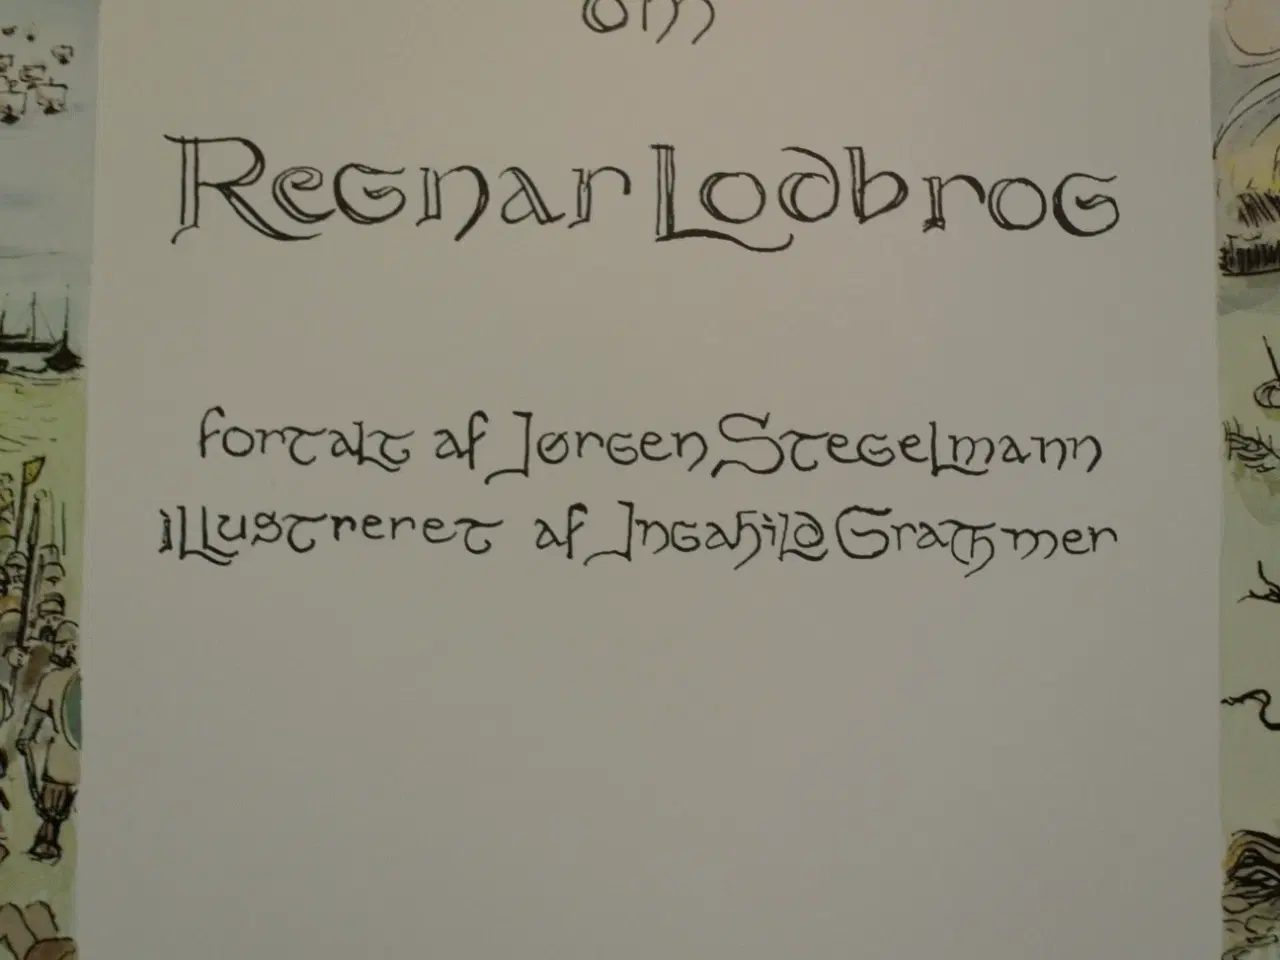 om
Regnar Lodbrog
fortalt af Jørgen Stegelmann
illustreret af Ingahild Grathmer